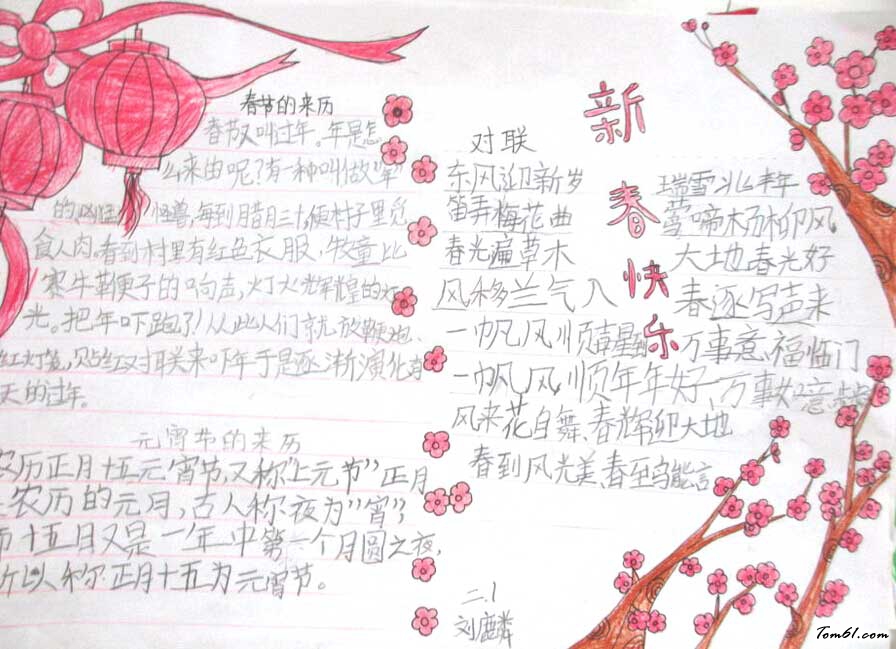 春节的来历
春节又叫过年。年是怎
么来由呢?有一种叫做"年"
的 怪兽,每到腊月三十,便村子里觅
食人肉。看到村里有红色衣服,牧童比
赛牛鞭子的响声,灯火辉煌的灯
光。把年吓跑了!从此人们就放鞭炮、
红灯笼,贴红对联来吓年于是逐渐演化
天的过年。
元宵节的来历
农历正月十五元宵节,又称"上元节"正月
农历的元月,古人称夜为"宵",
而十五日又是一年中第一个月圆之夜,
所以称正月十五为元宵节。
新春快乐
对联
东风迎新岁 瑞雪兆丰年
笛弄梅花曲 莺啼杨柳风
春光遍草木 大地春光好
风移兰气入 春逐写声来
一帆风顺吉星到 万事意、福临门
一帆风顺年年好、万事如意
风来花自舞、春辉卯大地
春到风光美、春至鸟能言
二.1
刘麟
Tom61.com